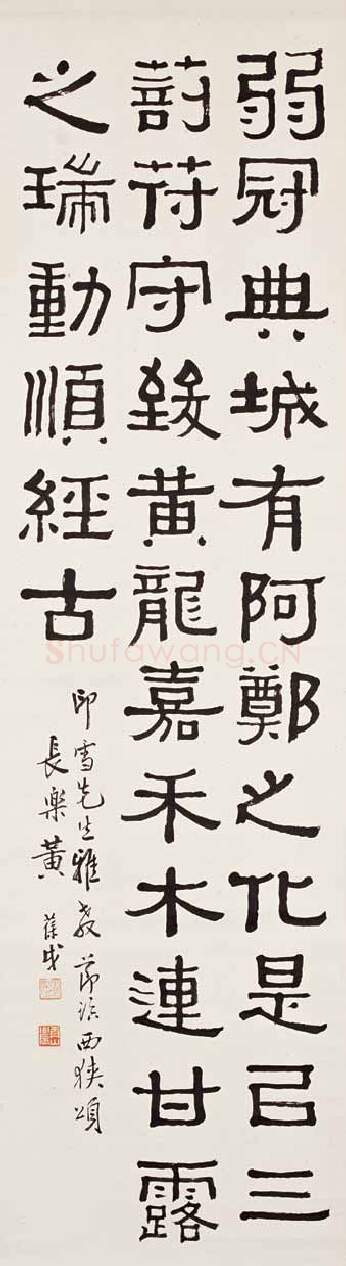 弱冠典城有阿鄭之化是㠯三
剖苻守致黃龍嘉禾木連甘露
之瑞動順經古
印雪先生雅教 節臨西狹頌
長樂黃葆戉
Shufawang.CN